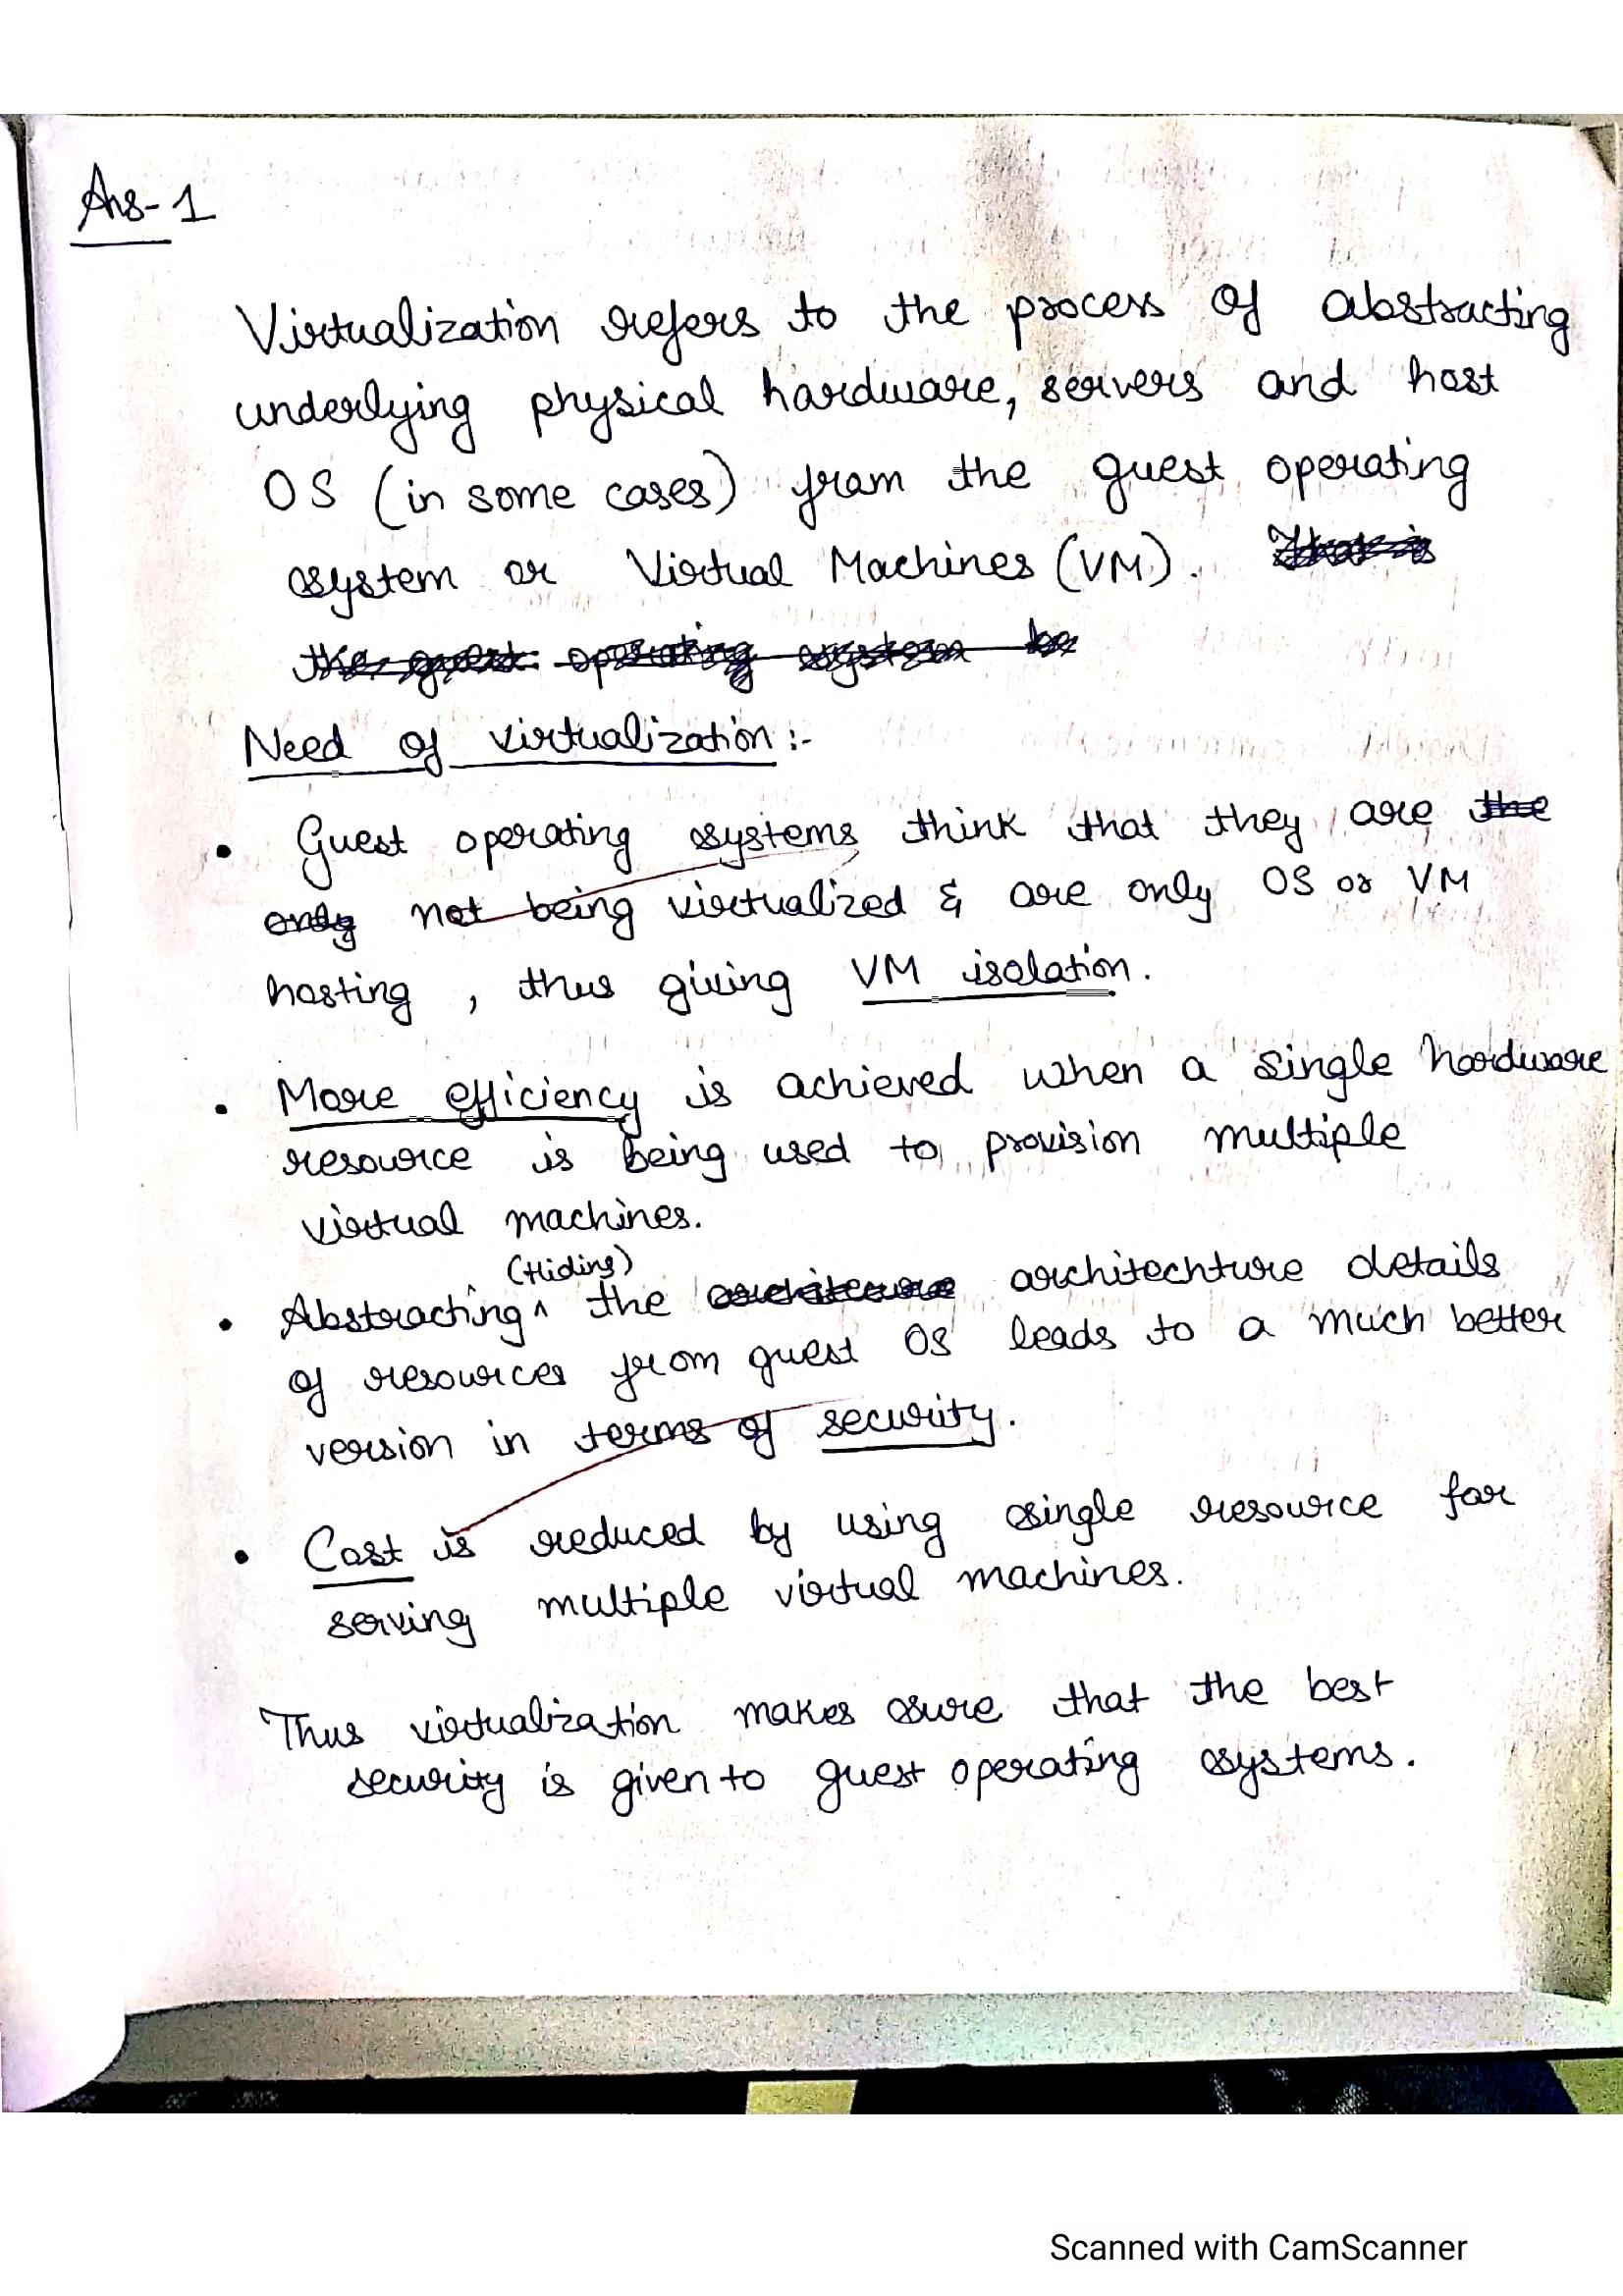 Ans-1
Virtualization refers to the process of abstracting
underlying physical hardware, servers and host
OS (in some cases) from the guest operating
system or Virtual Machines (VM). That is
the guest operating system be
Need of virtualization :-
• Guest operating systems think that they are the
only not being virtualized & are only OS or VM
hosting , thus giving VM isolation.
• More efficiency is achieved when a single hardware
resource is being used to provision multiple
virtual machines.
(Hiding)
• Abstracting ^ the architechture details
of resources from guest OS leads to a much better
version in terms of security.
• Cost is reduced by using single resource for
serving multiple virtual machines.
Thus virtualization makes sure that the best
security is given to guest operating systems.
Scanned with CamScanner